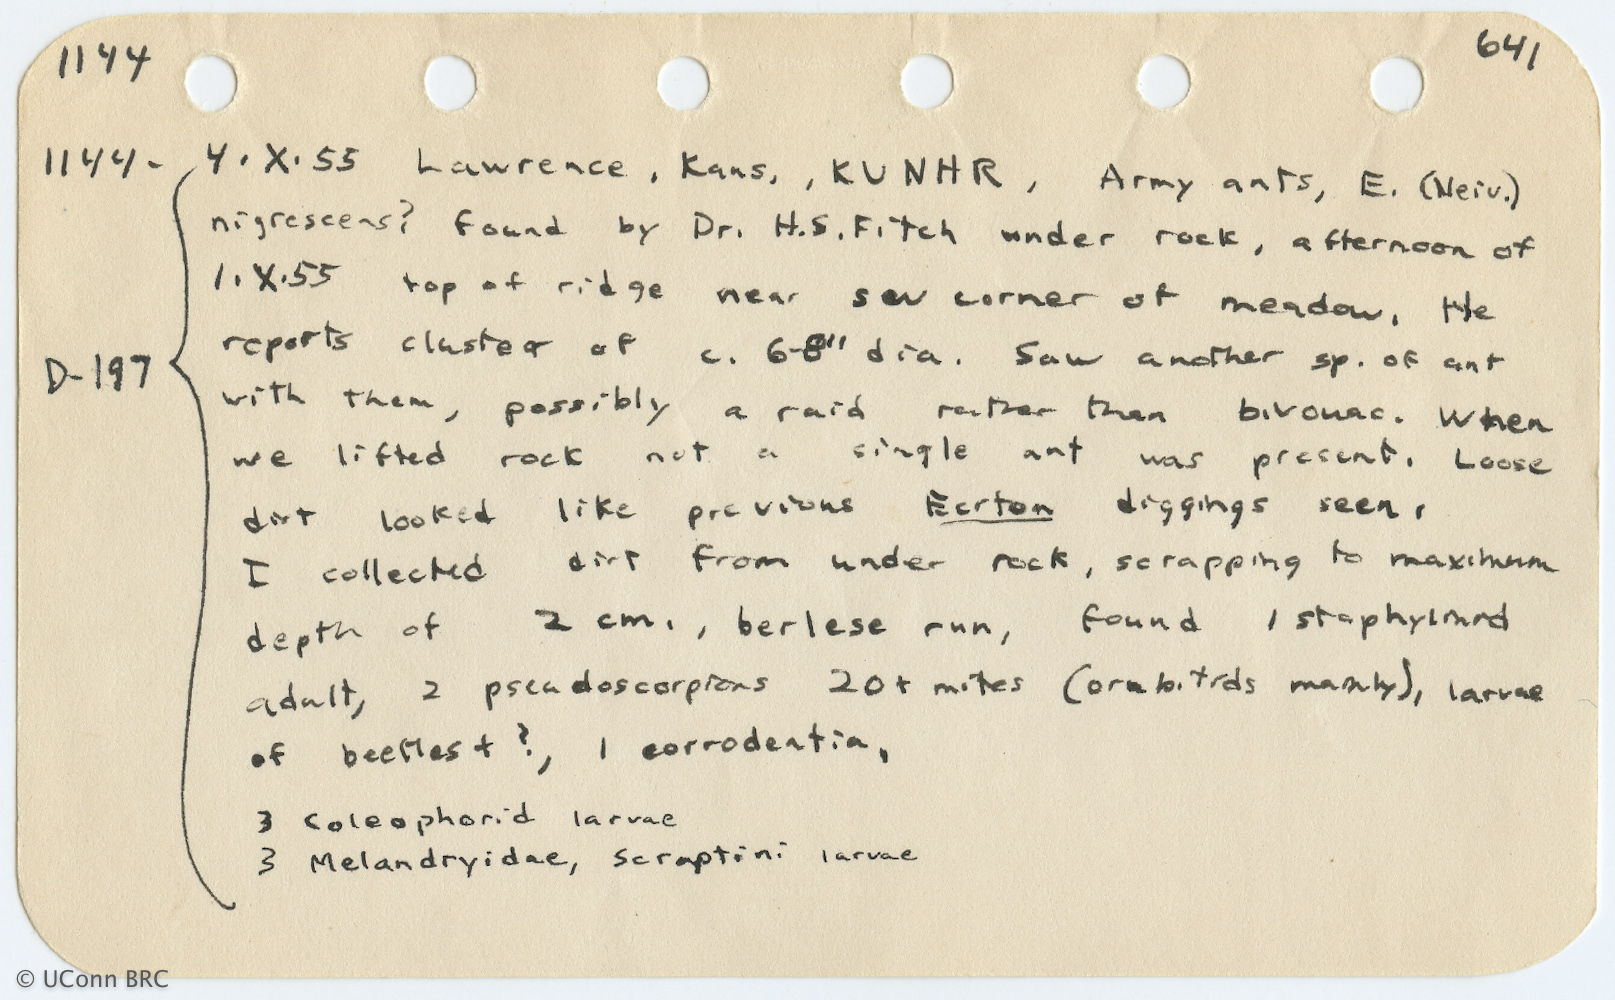 1144 641
1144- 4.X.55 Lawrence, Kans., KUNHR, Army ants, E. (Neiv.)
nigrescens? found by Dr. H.S. Fitch under rock, afternoon of
1.X.55 top of ridge near sw corner of meadow. He
reports cluster of c. 6-8" dia. Saw another sp. of ant
D-197
with them, possibly a raid rather than bivouac. When
we lifted rock not a single ant was present. Loose
dirt looked like previous Eciton diggings seen.
I collected dirt from under rock, scrapping to maximum
depth of 2 cm., berlese run, found 1 staphylinid
adult, 2 pseudoscorpions 20+ mites (orabitids mainly), larvae
of beetles + ?, 1 corrodentia,
3 Coleophorid larvae
3 Melandryidae, Scraptini larvae
© UConn BRC